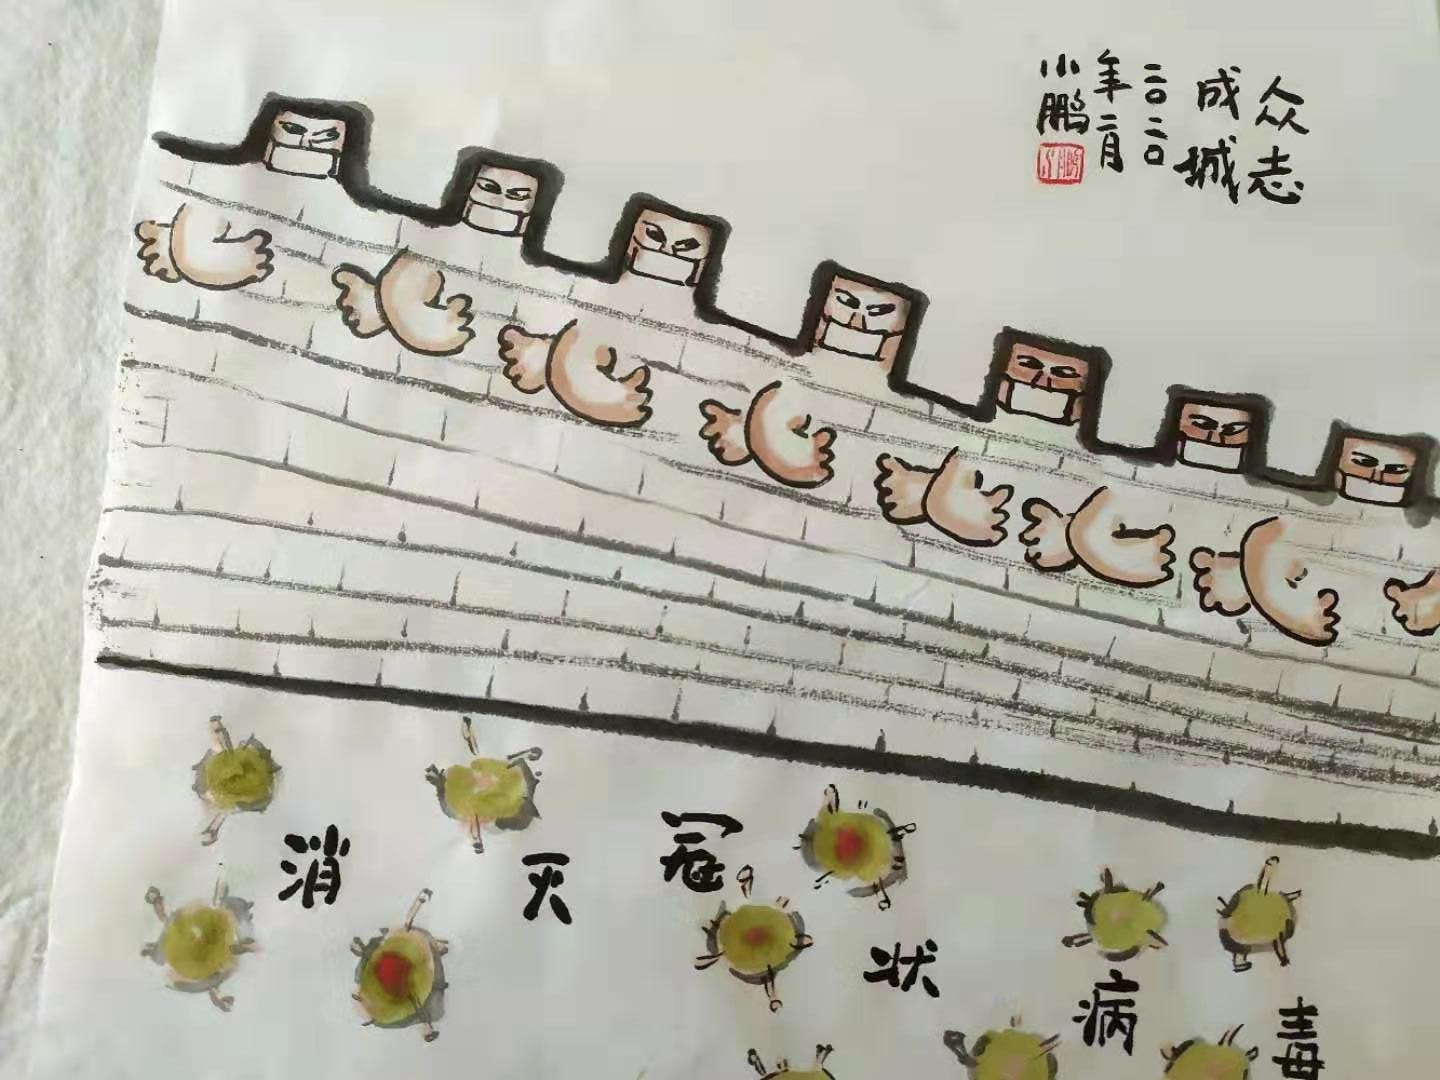 众志
成城
二〇二〇
年二月
小鹏
消灭冠状病毒